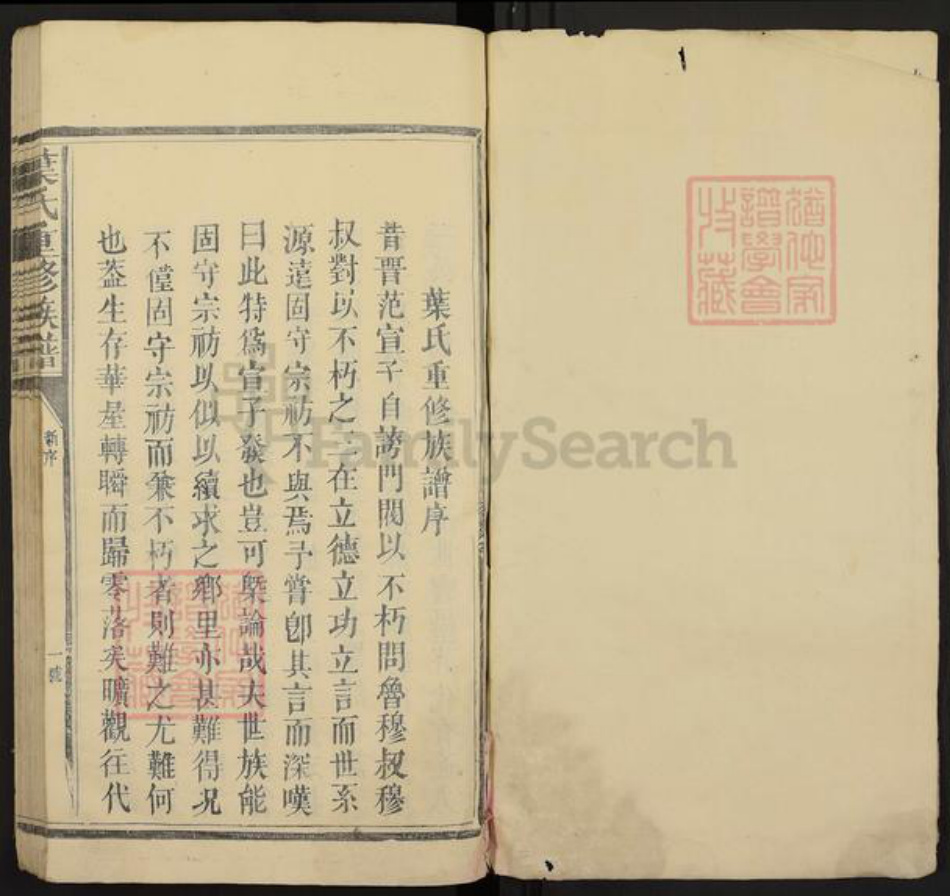 葉氏重修族譜序
昔晋范宣子自誇門閥以不朽問魯穆叔穆
叔對以不朽之三在立德立功立言而世系
源遠固守宗祊不與焉予嘗卽其言而深嘆
曰此特爲宣子發也豈可槩論哉夫世族能
固守宗祊以似以續求之鄉里亦甚難得况
不僅固守宗祊而兼不朽者則難之尤難何
也葢生存華屋轉瞬而歸零落矣曠觀往代
葉氏重修族譜
新序
一號
譜學會
收藏
FamilySearch